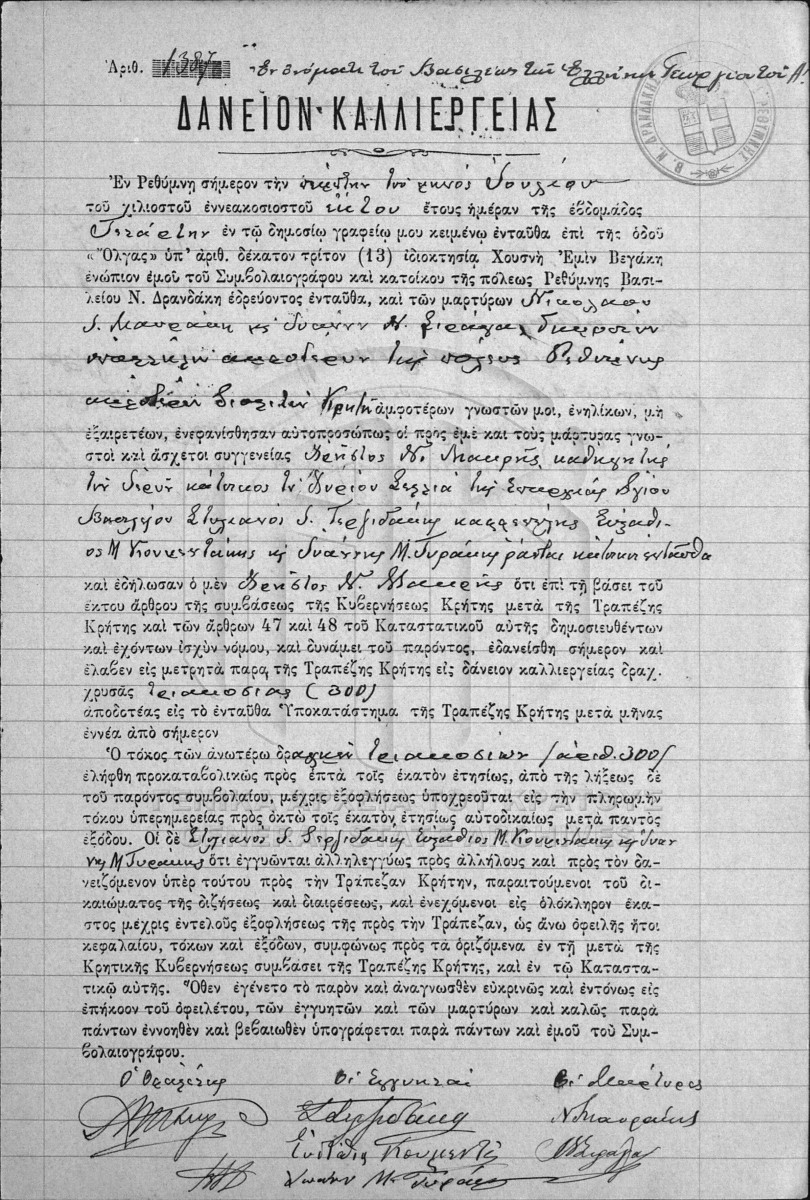 Ἀριθ. 1387 Ἐν ὀνόματι τοῦ Βασιλέως τῶν Ἑλλήνων Γεωργίου τοῦ Α!
ΔΑΝΕΙΟΝ ΚΑΛΛΙΕΡΓΕΙΑΣ
Ἐν Ρεθύμνῃ σήμερον τὴν πέμπτην τοῦ μηνὸς Ἰουλίου
τοῦ χιλιοστοῦ ἐννεακοσιοστοῦ ἕκτου ἔτους ἡμέραν τῆς ἑβδομάδος
Τετάρτην ἐν τῷ δημοσίῳ γραφείῳ μου κειμένῳ ἐνταῦθα ἐπὶ τῆς ὁδοῦ
«Ὄλγας» ὑπ' ἀριθ. δέκατον τρίτον (13) ἰδιοκτησία Χουσνῆ Ἐμὶν Βεγάκη
ἐνώπιον ἐμοῦ τοῦ Συμβολαιογράφου καὶ κατοίκου τῆς πόλεως Ρεθύμνης Βασι-
λείου Ν. Δρανδάκη ἑδρεύοντος ἐνταῦθα, καὶ τῶν μαρτύρων Νικολάου
Ι. Μαυράκη κ Ἰωάννου Ν.
τῆς πόλεως Ρεθύμνης
Κρήτῃ ἀμφοτέρων γνωστῶν μοι, ἐνηλίκων, μὴ
ἐξαιρετέων, ἐνεφανίσθησαν αὐτοπροσώπως οἱ πρὸς ἐμὲ καὶ τοὺς μάρτυρας γνω-
στοὶ καὶ ἄσχετοι συγγενείας Χρῆστος Ν. Μακρῆς καθηγητὴς
κάτοικος τῆς Ἐπαρχίας Ἁγίου
Βασιλείου Στυλιανὸς Ι. Εὐστάθι-
ος Μ κ Ἰωάννης Μ. Τυράκης κάτοικοι ἐνταῦθα
καὶ ἐδήλωσαν ὁ μὲν Χρῆστος Ν. Μακρῆς ὅτι ἐπὶ τῇ βάσει τοῦ
ἕκτου ἄρθρου τῆς συμβάσεως τῆς Κυβερνήσεως Κρήτης μετὰ τῆς Τραπέζης
Κρήτης καὶ τῶν ἄρθρων 47 καὶ 48 τοῦ Καταστατικοῦ αὐτῆς δημοσιευθέντων
καὶ ἐχόντων ἰσχὺν νόμου, καὶ δυνάμει τοῦ παρόντος, ἐδανείσθη σήμερον καὶ
ἔλαβεν εἰς μετρητὰ παρὰ τῆς Τραπέζης Κρήτης εἰς δάνειον καλλιεργείας δραχ.
χρυσᾶς τριακοσίας (300)
ἀποδοτέας εἰς τὸ ἐνταῦθα Ὑποκατάστημα τῆς Τραπέζης Κρήτης μετὰ μῆνας
ἐννέα ἀπὸ σήμερον
Ὁ τόκος τῶν ἀνωτέρω δραχμῶν τριακοσίων (ἀριθ. 300)
ἐλήφθη προκαταβολικῶς πρὸς ἑπτὰ τοῖς ἑκατὸν ἐτησίως, ἀπὸ τῆς λήξεως δὲ
τοῦ παρόντος συμβολαίου, μέχρις ἐξοφλήσεως ὑποχρεοῦται εἰς τὴν πληρωμὴν
τόκου ὑπερημερείας πρὸς ὀκτὼ τοῖς ἑκατὸν ἐτησίως αὐτοδικαίως μετὰ παντὸς
ἐξόδου. Οἱ δὲ Στυλιανὸς Ι. Εὐστάθιος Μ. κ Ἰωάν-
νης Μ Τυράκης ὅτι ἐγγυῶνται ἀλληλεγγύως πρὸς ἀλλήλους καὶ πρὸς τὸν δα-
νειζόμενον ὑπὲρ τούτου πρὸς τὴν Τράπεζαν Κρήτην, παραιτούμενοι τοῦ δι-
καιώματος τῆς διζήσεως καὶ διαιρέσεως, καὶ ἐνεχόμενοι εἰς ὁλόκληρον ἕκα-
στος μέχρις ἐντελοῦς ἐξοφλήσεως τῆς πρὸς τὴν Τράπεζαν, ὡς ἄνω ὀφειλῆς ἤτοι
κεφαλαίου, τόκων καὶ ἐξόδων, συμφώνως πρὸς τὰ ὁριζόμενα ἐν τῇ μετὰ τῆς
Κρητικῆς Κυβερνήσεως συμβάσει τῆς Τραπέζης Κρήτης, καὶ ἐν τῷ Καταστα-
τικῷ αὐτῆς. Ὅθεν ἐγένετο τὸ παρὸν καὶ ἀναγνωσθὲν εὐκρινῶς καὶ ἐντόνως εἰς
ἐπήκοον τοῦ ὀφειλέτου, τῶν ἐγγυητῶν καὶ τῶν μαρτύρων καὶ καλῶς παρὰ
πάντων ἐννοηθὲν καὶ βεβαιωθὲν ὑπογράφεται παρὰ πάντων καὶ ἐμοῦ τοῦ Συμ-
βολαιογράφου.
Ὁ Ὀφειλέτης Οἱ Ἐγγυηταὶ Οἱ Μάρτυρες
Ν Μαυράκης
Εὐστάθιος
Ἰωάνν Μ. Τυράκ